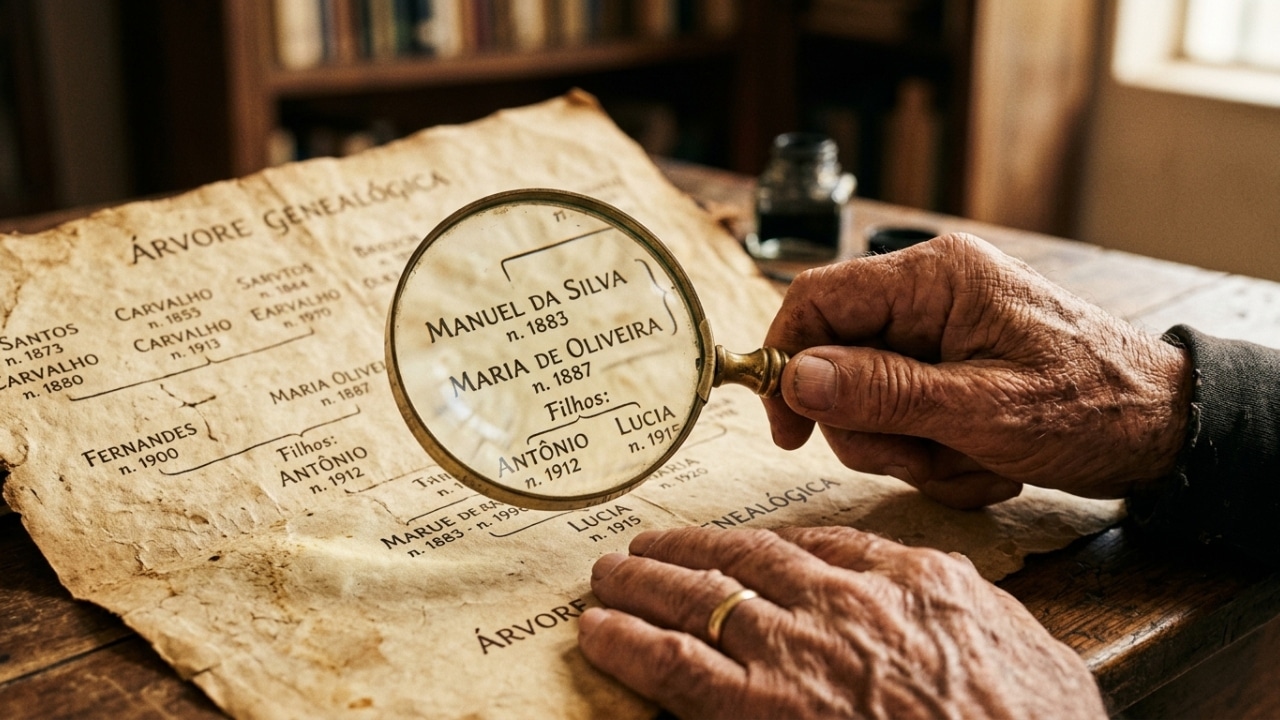 ÁRVORE GENEALÓGICA
SANTOS
n. 1873
CARVALHO
n. 1880
CARVALHO
n. 1855
CARVALHO
n. 1913
n. 1844
EARVALHO
n. 1970
FERNANDES
n. 1900
MARIA OLIVE
n. 1887
Filhos:
ANTÔNIO
n. 1912
n.
MANUEL DA SILVA
n. 1883
MARIA DE OLIVEIRA
n. 1887
Filhos:
ANTÔNIO
n. 1912
LUCIA
n. 1915
MARUE DE
n. 1883 - n. 1990
LUCIA
n. 1915
n. 1920
ÁRVORE GENEALÓGICA